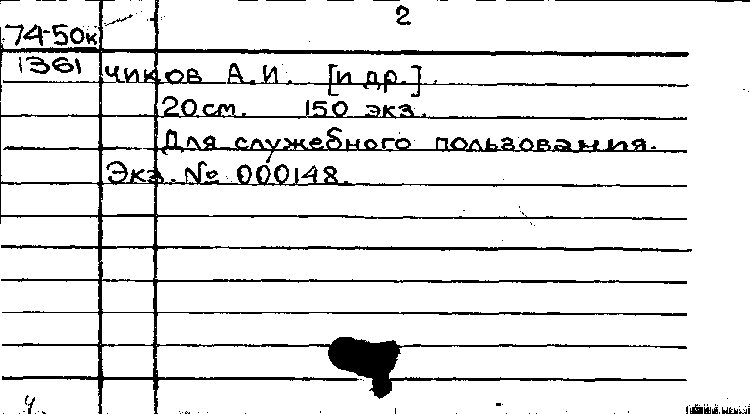 2
74-50к
1361
чиков А.И. [и др.].
20 см. 150 экз.
Для служебного пользования.
Экз. № 000148.